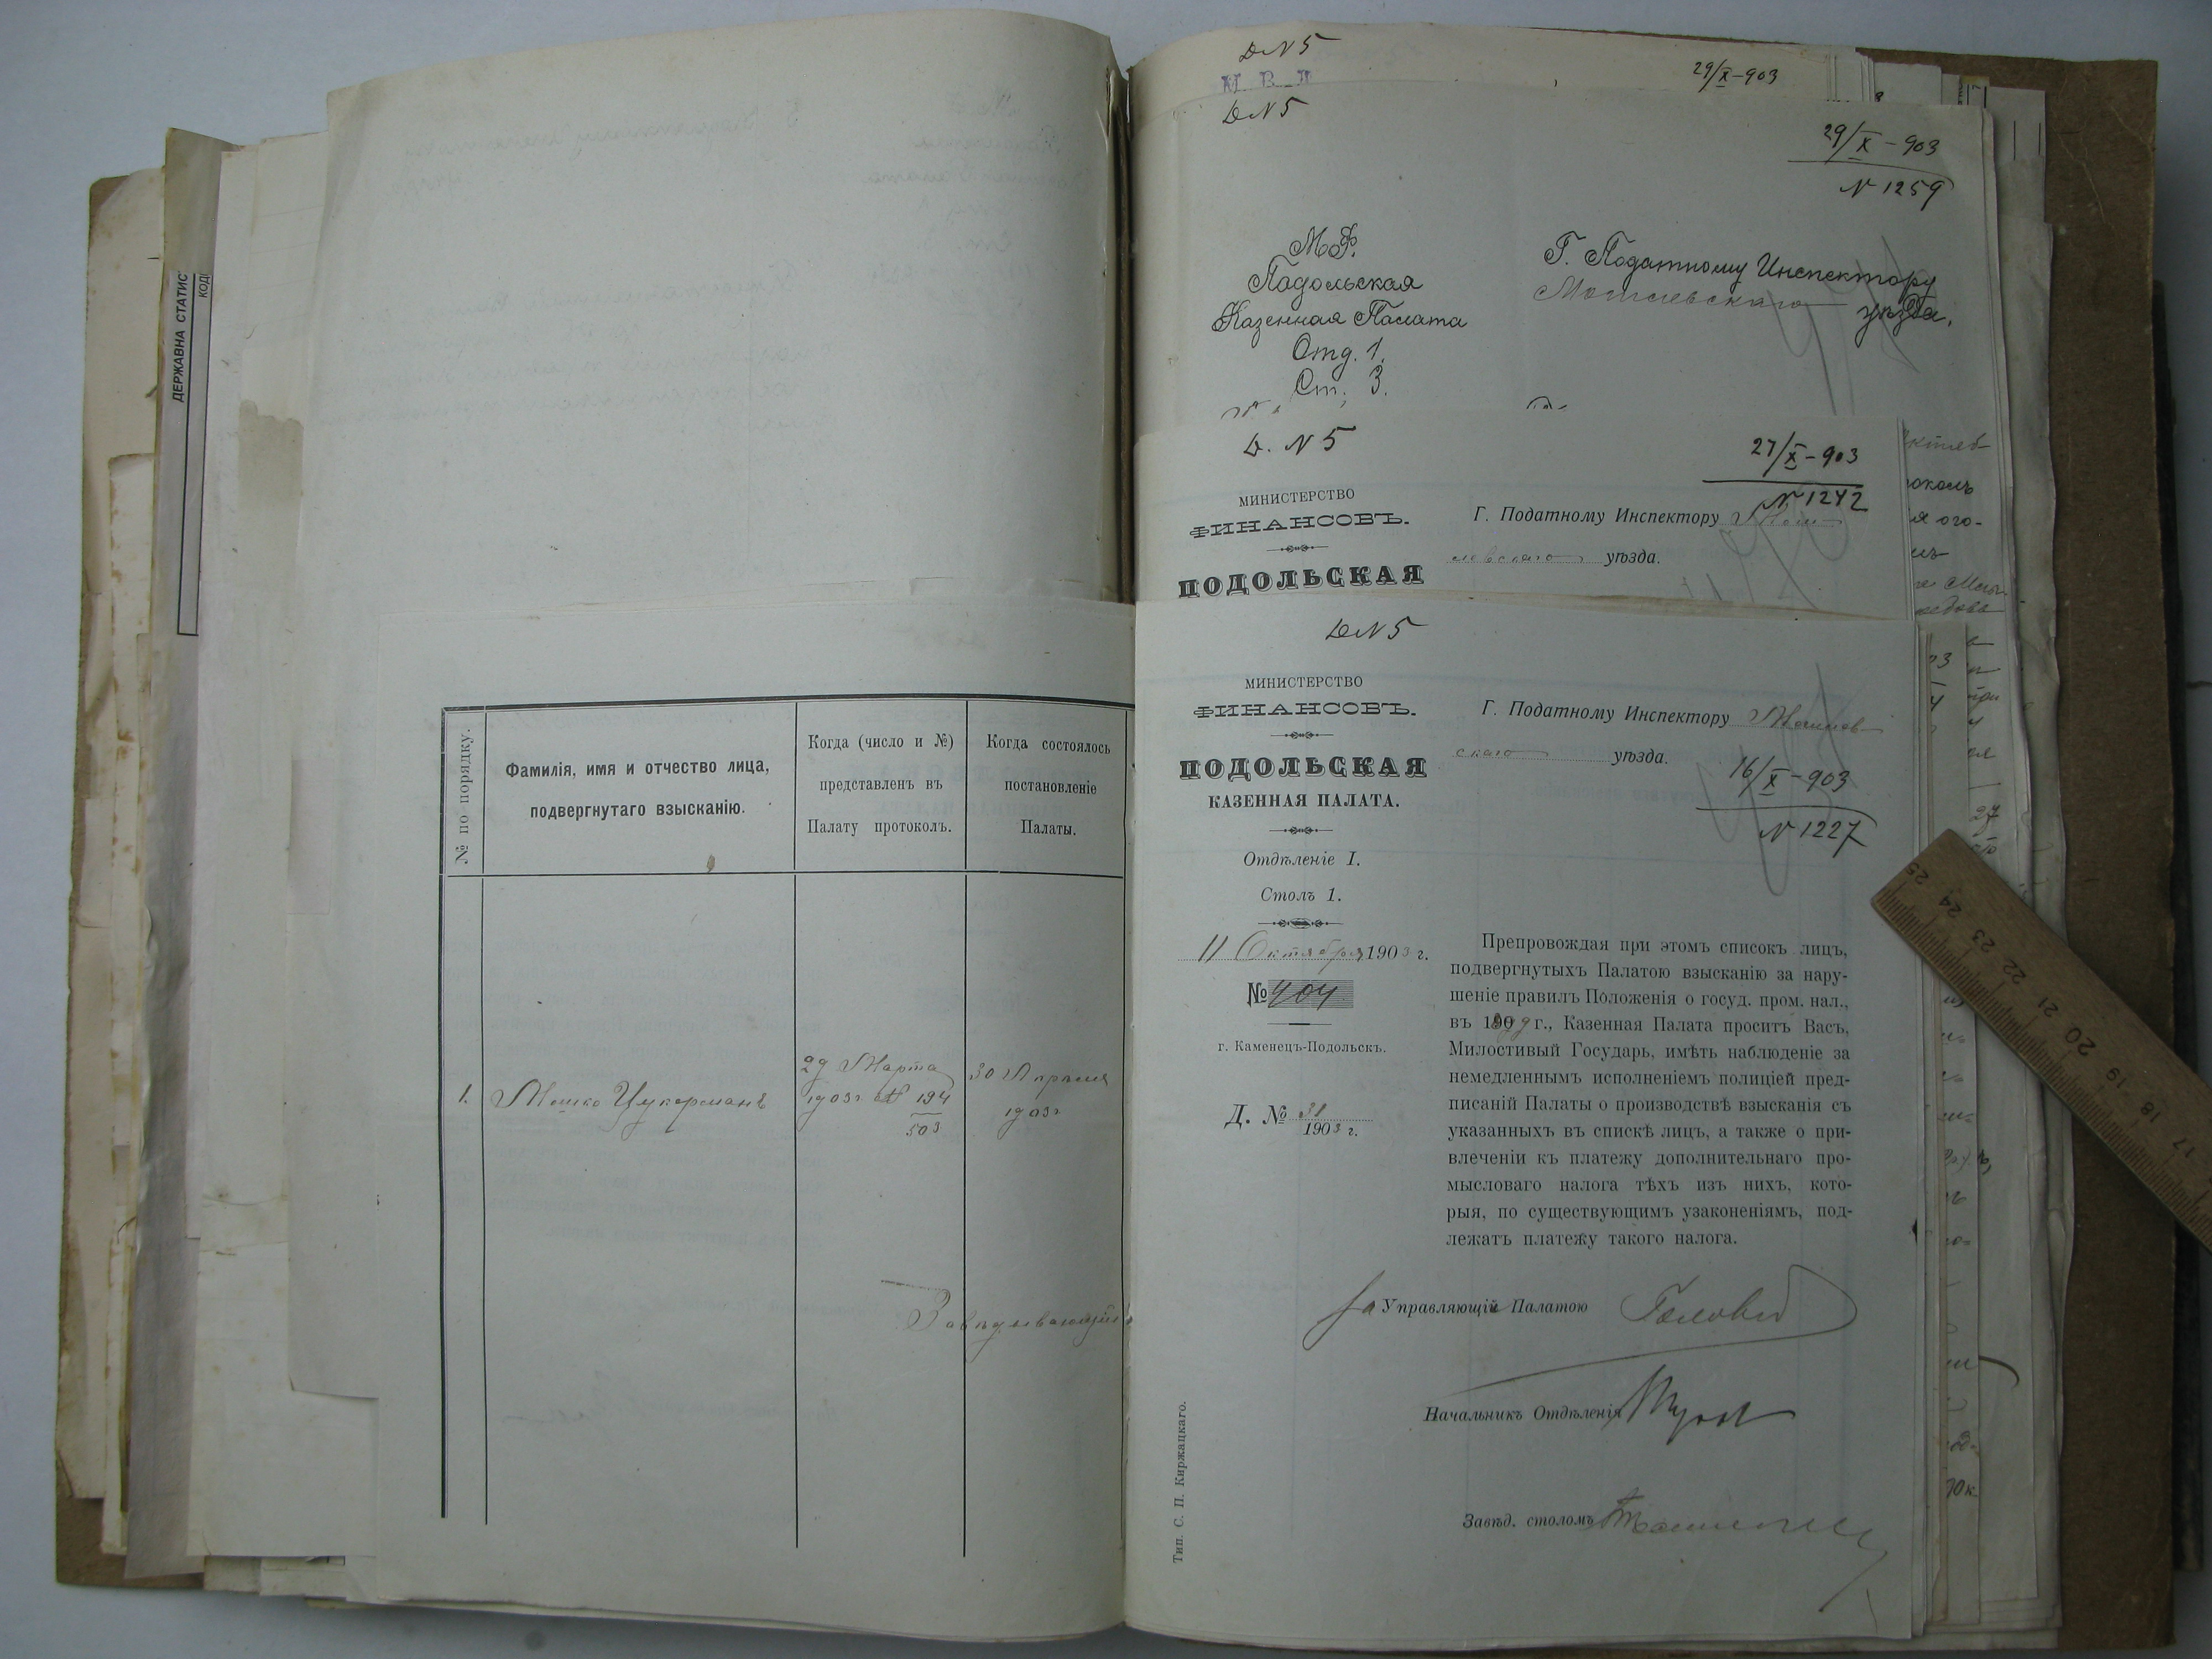 ДЕРЖАВНА СТАТИС
КОД
№ по порядку.
Фамилія, имя и отчество лица,
подвергнутаго взысканію.
Когда (число и №)
представленъ въ
Палату протоколъ.
Когда состоялось
постановленіе
Палаты.
1.
Мошко Цукерманъ
29 Марта
1903 г. № 194
503
30 Апрѣля
1903 г.
Завѣдывающій
Д N 5
М В Д
29/X-903
Д N 5
29/X-903
N 1259
М.Ф.
Подольская
Казенная Палата
Отд. 1.
Ст. 3.
Г. Податному Инспектору
Могилевскаго уѣзда.
Д. N 5
27/X-903
N 1242
МИНИСТЕРСТВО
ФИНАНСОВЪ.
ПОДОЛЬСКАЯ
Г. Податному Инспектору Моги
левскаго уѣзда.
Д N 5
МИНИСТЕРСТВО
ФИНАНСОВЪ.
ПОДОЛЬСКАЯ
КАЗЕННАЯ ПАЛАТА.
Отдѣленіе I.
Столъ 1.
11 Октября 1903 г.
№ 404
г. Каменецъ-Подольскъ.
Д. № 31
1903 г.
Г. Податному Инспектору Могилев
скаго уѣзда.
16/X-903
N 1227
Препровождая при этомъ списокъ лицъ,
подвергнутыхъ Палатою взысканію за нару-
шеніе правилъ Положенія о госуд. пром. нал.,
въ г., Казенная Палата проситъ Васъ,
Милостивый Государь, имѣть наблюденіе за
немедленнымъ исполненіемъ полиціей пред-
писаній Палаты о производствѣ взысканія съ
указанныхъ въ спискѣ лицъ, а также о при-
влеченіи къ платежу дополнительнаго про-
мысловаго налога тѣхъ изъ нихъ, кото-
рыя, по существующимъ узаконеніямъ, под-
лежатъ платежу такого налога.
За Управляющій Палатою
Начальникъ Отдѣленія
Завѣд. столомъ
Тип. С. П. Киржацкаго.
25 24 23 22 21 20 19 18 17